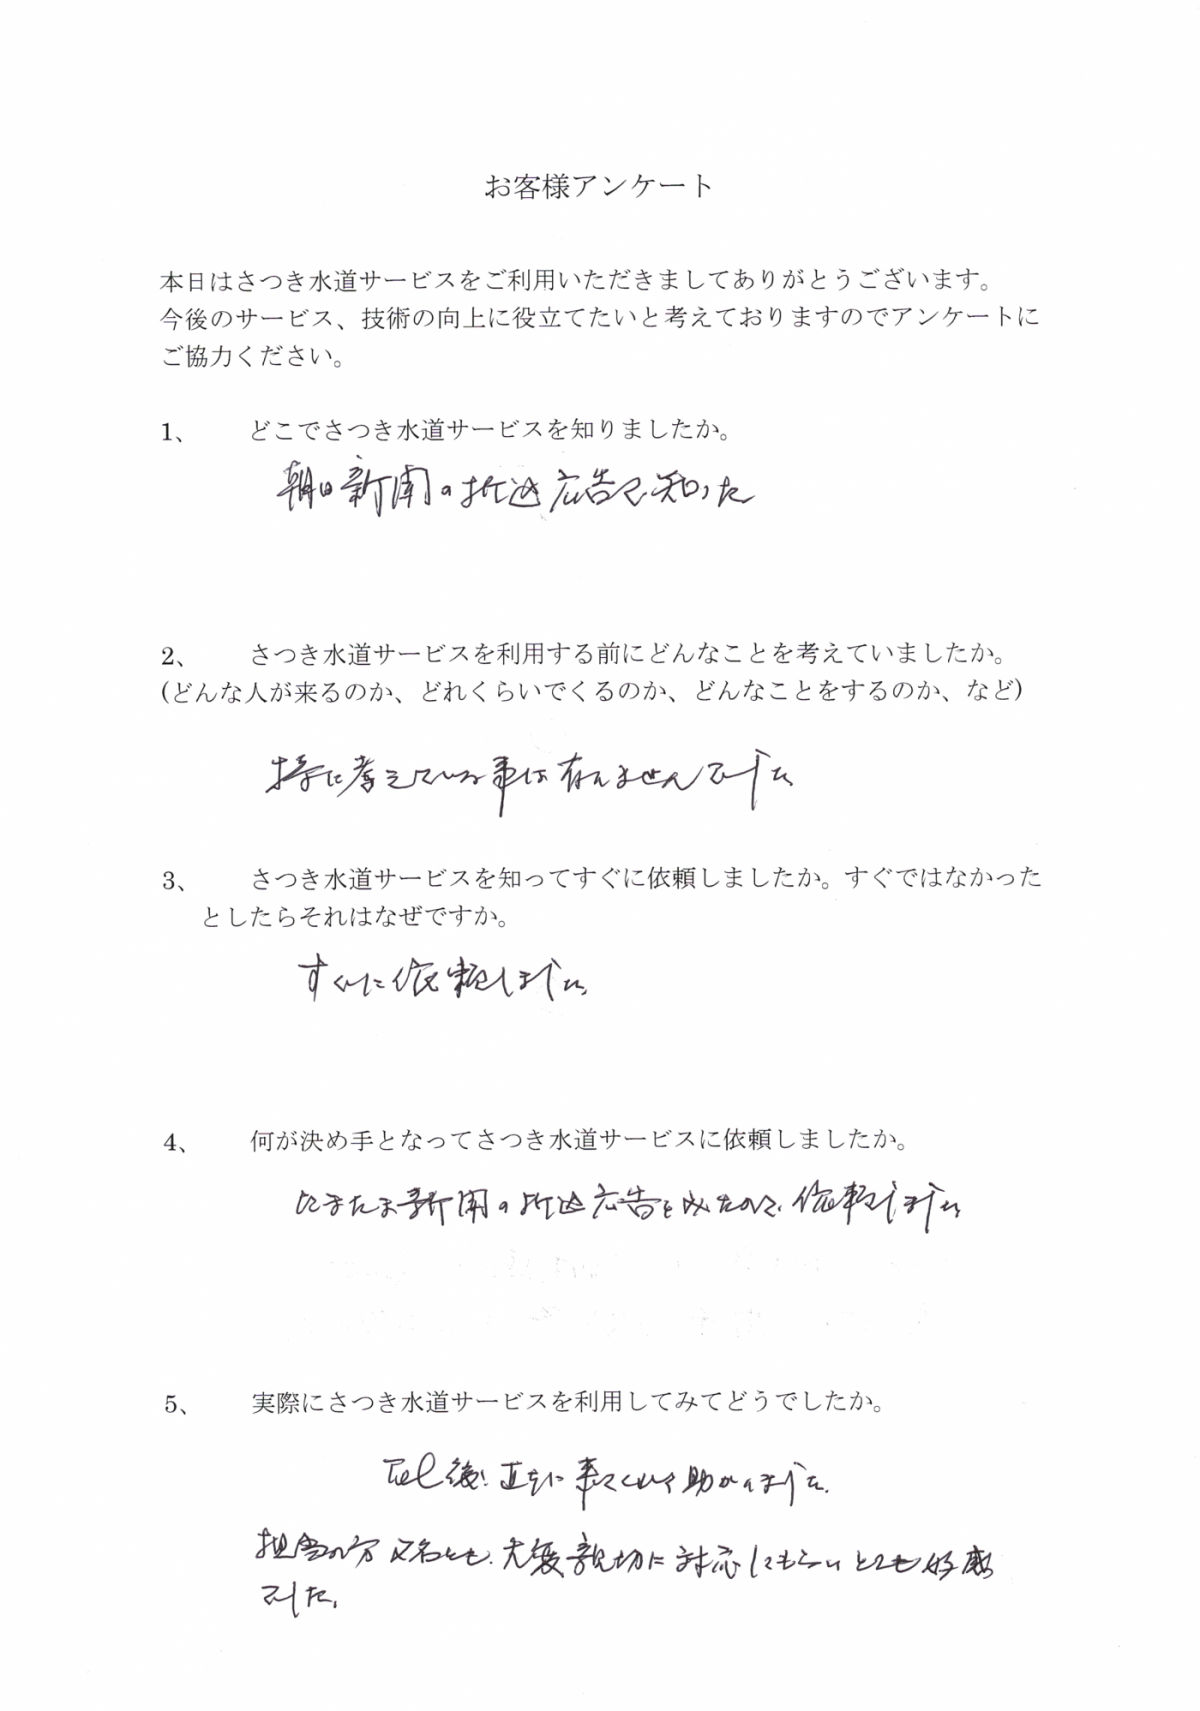 お客様アンケート
本日はさつき水道サービスをご利用いただきましてありがとうございます。
今後のサービス、技術の向上に役立てたいと考えておりますのでアンケートに
ご協力ください。
1、 どこでさつき水道サービスを知りましたか。
朝日新聞の折込広告で知った
2、 さつき水道サービスを利用する前にどんなことを考えていましたか。
(どんな人が来るのか、どれくらいでくるのか、どんなことをするのか、など)
特に考えている事は有りませんでした
3、 さつき水道サービスを知ってすぐに依頼しましたか。すぐではなかった
としたらそれはなぜですか。
すぐに依頼しました。
4、 何が決め手となってさつき水道サービスに依頼しましたか。
たまたま新聞の折込広告を見たので、依頼しました
5、 実際にさつき水道サービスを利用してみてどうでしたか。
Tel後、直ちに来てくれて助かりました。
担当の方2名とも、大変親切に対応してもらいとても好感
でした。